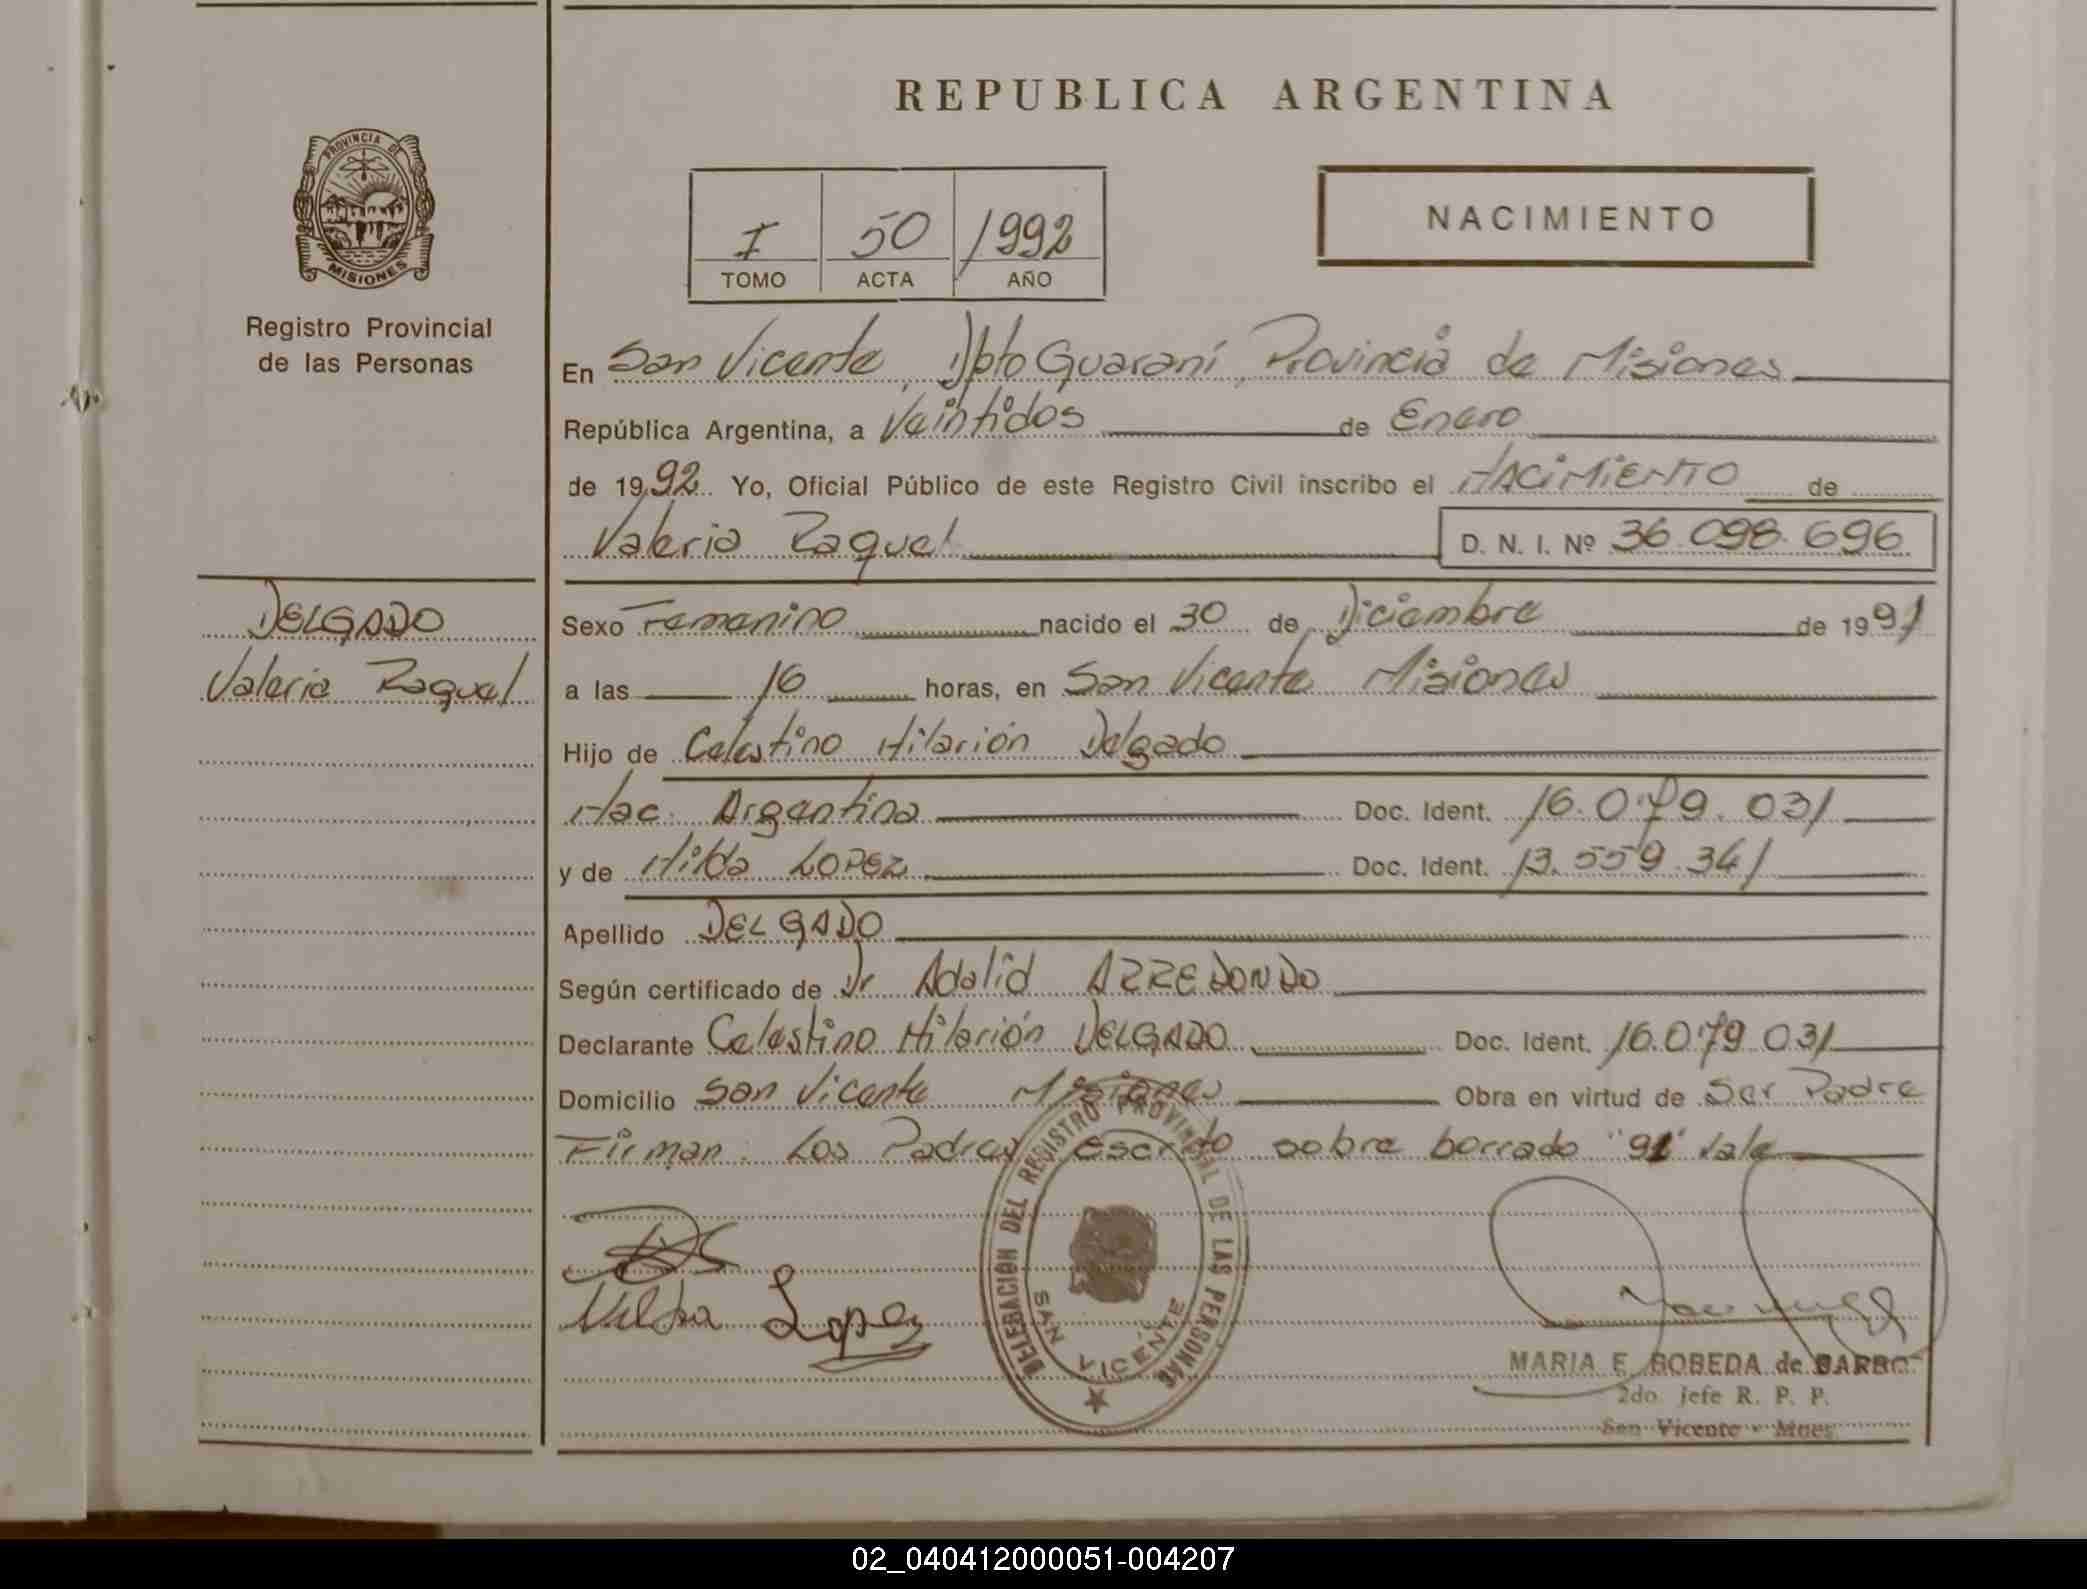 REPUBLICA ARGENTINA
PROVINCIA DE
MISIONES
Registro Provincial
de las Personas
I 50 1992
TOMO ACTA AÑO
NACIMIENTO
En San Vicente, Dpto Guaraní, Provincia de Misiones
República Argentina, a Veintidos de Enero
de 1992 Yo, Oficial Público de este Registro Civil inscribo el NACIMIENTO de
Valeria Raquel D. N. I. Nº 36.098.696
DELGADO
Valeria Raquel
Sexo Femenino nacido el 30 de Diciembre de 1991
a las 16 horas, en San Vicente Misiones
Hijo de Celestino Hilarión Delgado
Nac. Argentina Doc. Ident. 16.079.031
y de Hilda LOPEZ Doc. Ident. 13.559.341
Apellido DELGADO
Según certificado de Dr Adalid ARREDONDO
Declarante Celestino Hilarión DELGADO Doc. Ident. 16.079.031
Domicilio San Vicente Misiones Obra en virtud de Ser Padre
Firman. Los Padres escrito sobre borrado "91" Vale
DELEGACIÓN DEL REGISTRO PROVINCIAL DE LAS PERSONAS
SAN VICENTE
Lopez
MARIA E. BOBEDA de BARBO
2do. Jefe R. P. P.
San Vicente - Mnes
02_040412000051-004207